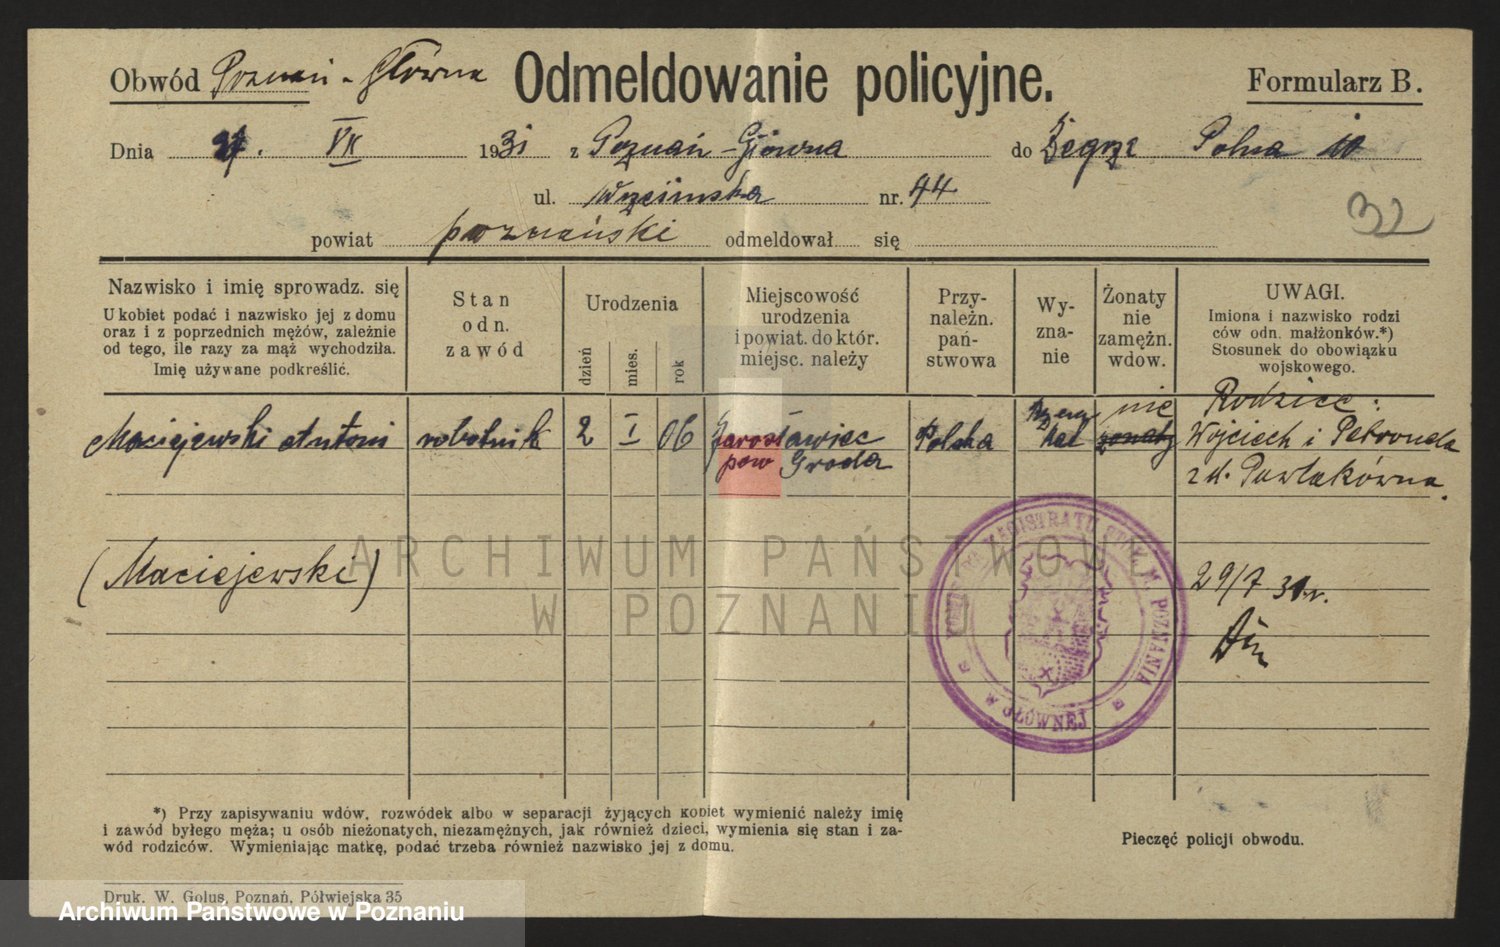 Obwód Poznań - Główna
Odmeldowanie policyjne.
Formularz B.
Dnia 27. VII 1931 z Poznań-Główna do Żegrze Polna 10
ul. Wrzesińska nr. 44
32
powiat poznański odmeldował się
Nazwisko i imię sprowadz. się
U kobiet podać i nazwisko jej z domu
oraz i z poprzednich mężów, zależnie
od tego, ile razy za mąż wychodziła.
Imię używane podkreślić.
Stan
odn.
zawód
Urodzenia
dzień
mies.
rok
Miejscowość
urodzenia
i powiat. do któr.
miejsc. należy
Przy-
należn.
pań-
stwowa
Wy-
zna-
nie
Żonaty
nie
zamężn.
wdow.
UWAGI.
Imiona i nazwisko rodzi
ców odn. małżonków.*)
Stosunek do obowiązku
wojskowego.
Maciejewski Antoni
robotnik
2
I
06
Jarosławiec
pow Środa
Polska
Rzym
kat
nie
żonaty
Rodzice:
Wojciech i Petronela
z d. Pawlakówna.
(Maciejewski)
29/7 31 r.
ARCHIWUM PAŃSTWOWE
W POZNANIU
MAGISTRATU STOŁ. M. POZNANIA
W GŁÓWNEJ
*) Przy zapisywaniu wdów, rozwódek albo w separacji żyjących kobiet wymienić należy imię
i zawód byłego męża; u osób nieżonatych, niezamężnych, jak również dzieci, wymienia się stan i za-
wód rodziców. Wymieniając matkę, podać trzeba również nazwisko jej z domu.
Pieczęć policji obwodu.
Druk. W. Golus, Poznań, Półwiejska 35
Archiwum Państwowe w Poznaniu